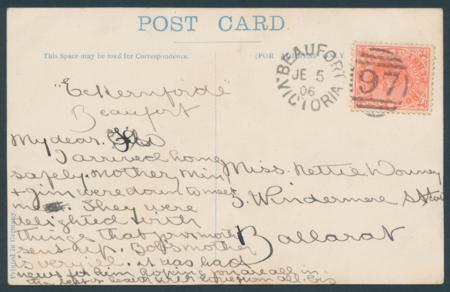 POST CARD
This Space may be used for Correspondence.
(FOR ADDRESS ONLY
BEAUFORT
JE 5
06
VICTORIA
97
"Eckernforde"
Beaufort
My dear
I arrived home
safely. Mother, min
+ Jim were down to meet
me. They were
delighted with
things that
sent up. Bob's mother
is very ill. it was bad
news for him hoping you are all in
the best
Miss. Nettie Downey
5. Windermere St
Ballarat
Printed in Germany